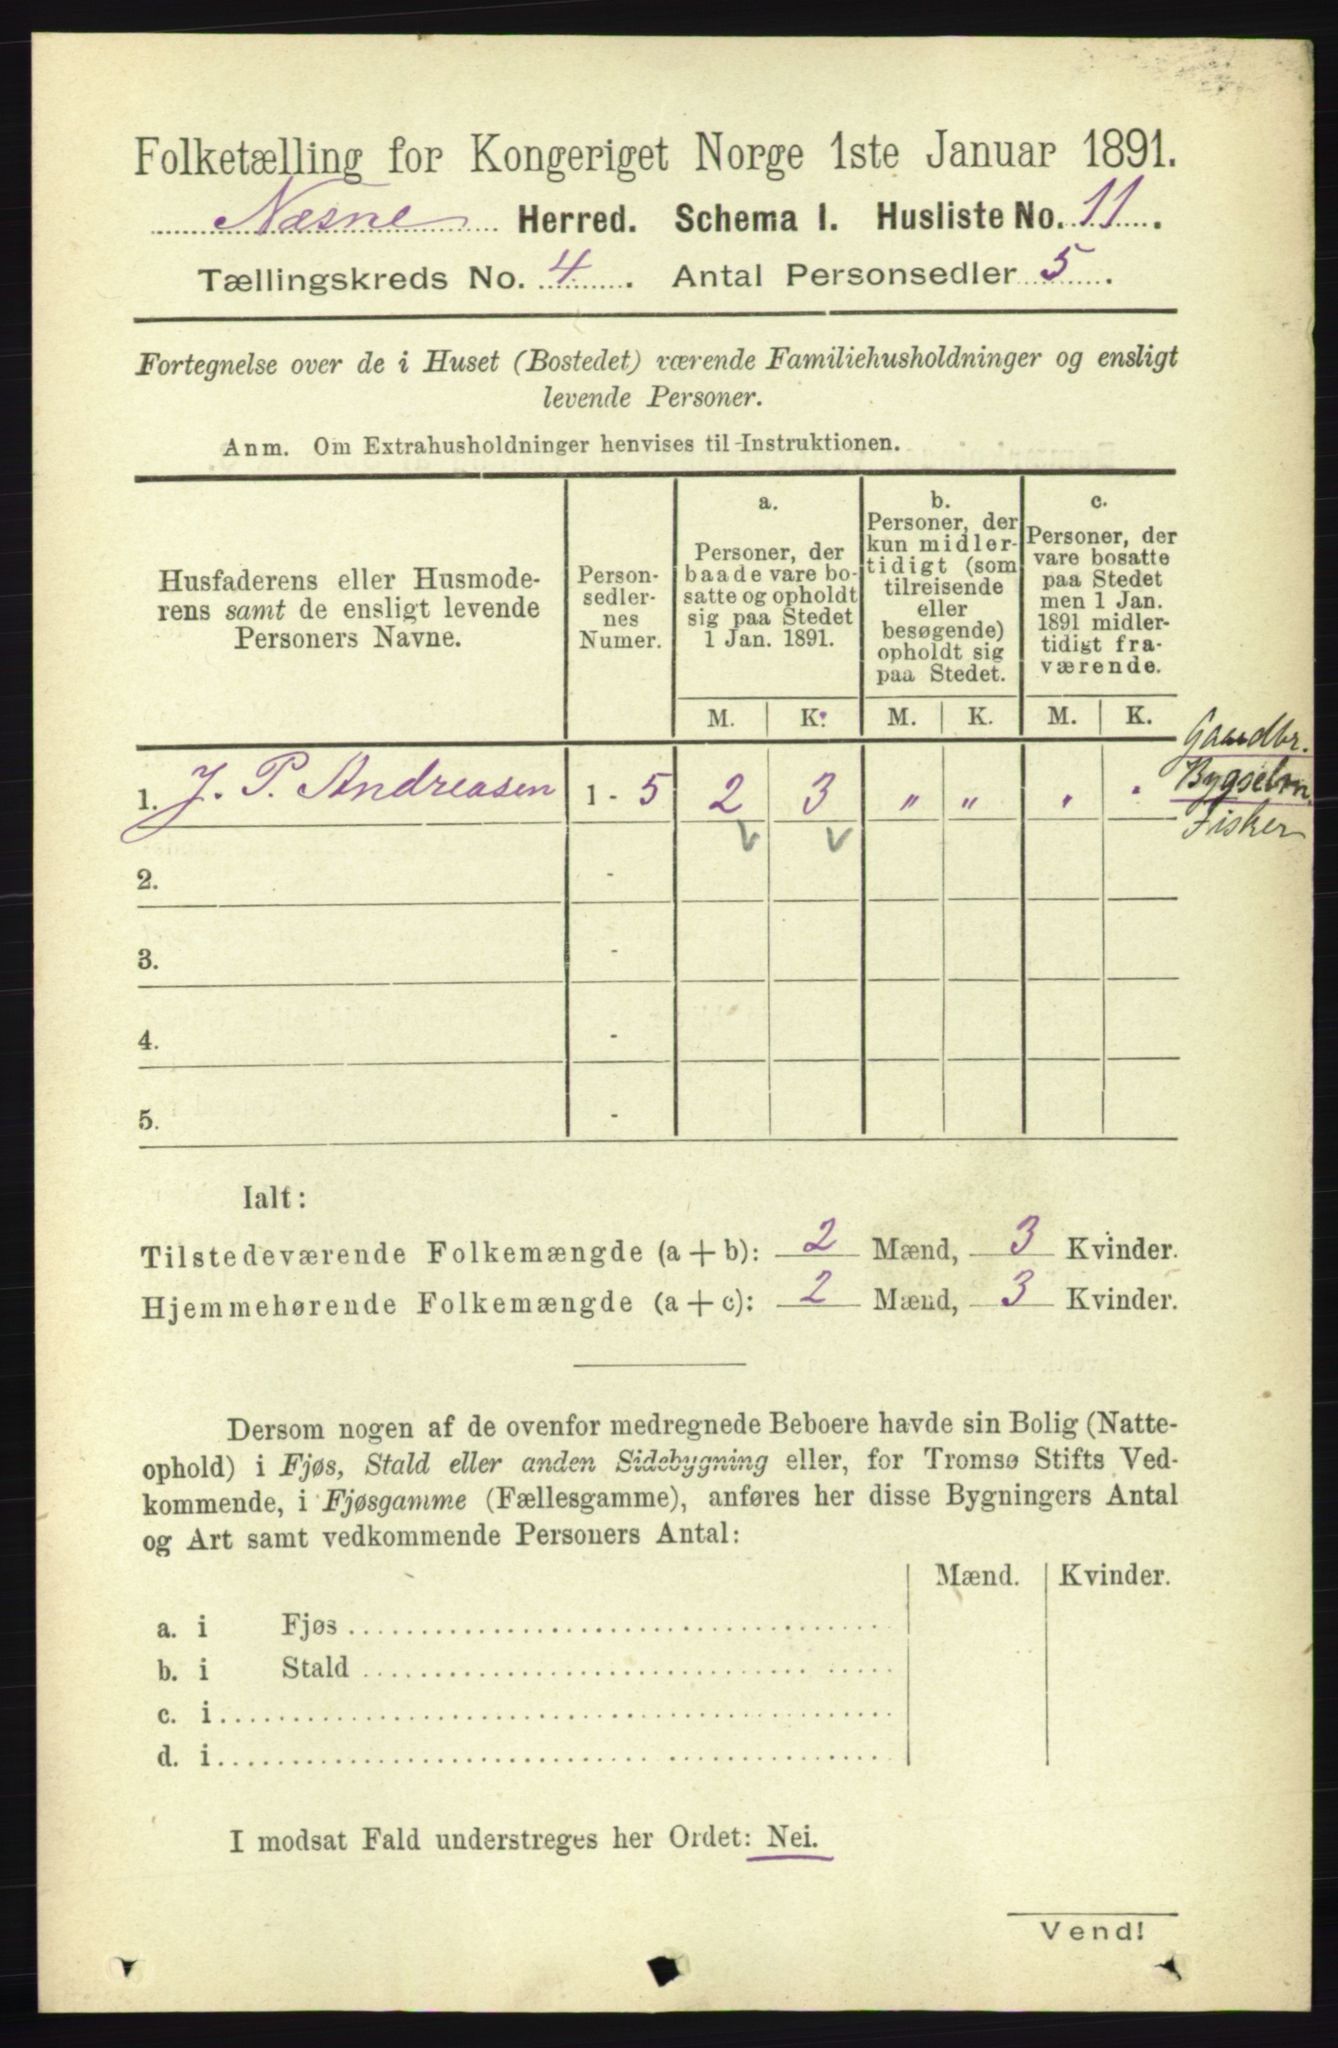 Folketælling for Kongeriget Norge 1ste Januar 1891.
Næsne Herred. Schema I. Husliste No. 11.
Tællingskreds No. 4. Antal Personsedler 5.
Fortegnelse over de i Huset (Bostedet) værende Familiehusholdninger og ensligt
levende Personer.
Anm. Om Extrahusholdninger henvises til Instruktionen.
Husfaderens eller Husmode-
rens samt de ensligt levende
Personers Navne.
Person-
sedler-
nes
Numer.
a.
Personer, der
baade vare bo-
satte og opholdt
sig paa Stedet
1 Jan. 1891.
b.
Personer, der
kun midler-
tidigt (som
tilreisende
eller
besøgende)
opholdt sig
paa Stedet.
c.
Personer, der
vare bosatte
paa Stedet
men 1 Jan.
1891 midler-
tidigt fra-
værende.
M. K. M. K. M. K.
Gaardbr.
1. J. P. Andreasen 1 - 5 2 3 " " " "
Bygselm.
Fisker
2. -
3. -
4. -
5. -
Ialt:
Tilstedeværende Folkemængde (a + b): 2 Mænd, 3 Kvinder.
Hjemmehørende Folkemængde (a + c): 2 Mænd, 3 Kvinder.
Dersom nogen af de ovenfor medregnede Beboere havde sin Bolig (Natte-
ophold) i Fjøs, Stald eller anden Sidebygning eller, for Tromsø Stifts Ved-
kommende, i Fjøsgamme (Fællesgamme), anføres her disse Bygningers Antal
og Art samt vedkommende Personers Antal:
Mænd. Kvinder.
a. i Fjøs
b. i Stald
c. i
d. i
I modsat Fald understreges her Ordet: Nei.
Vend!